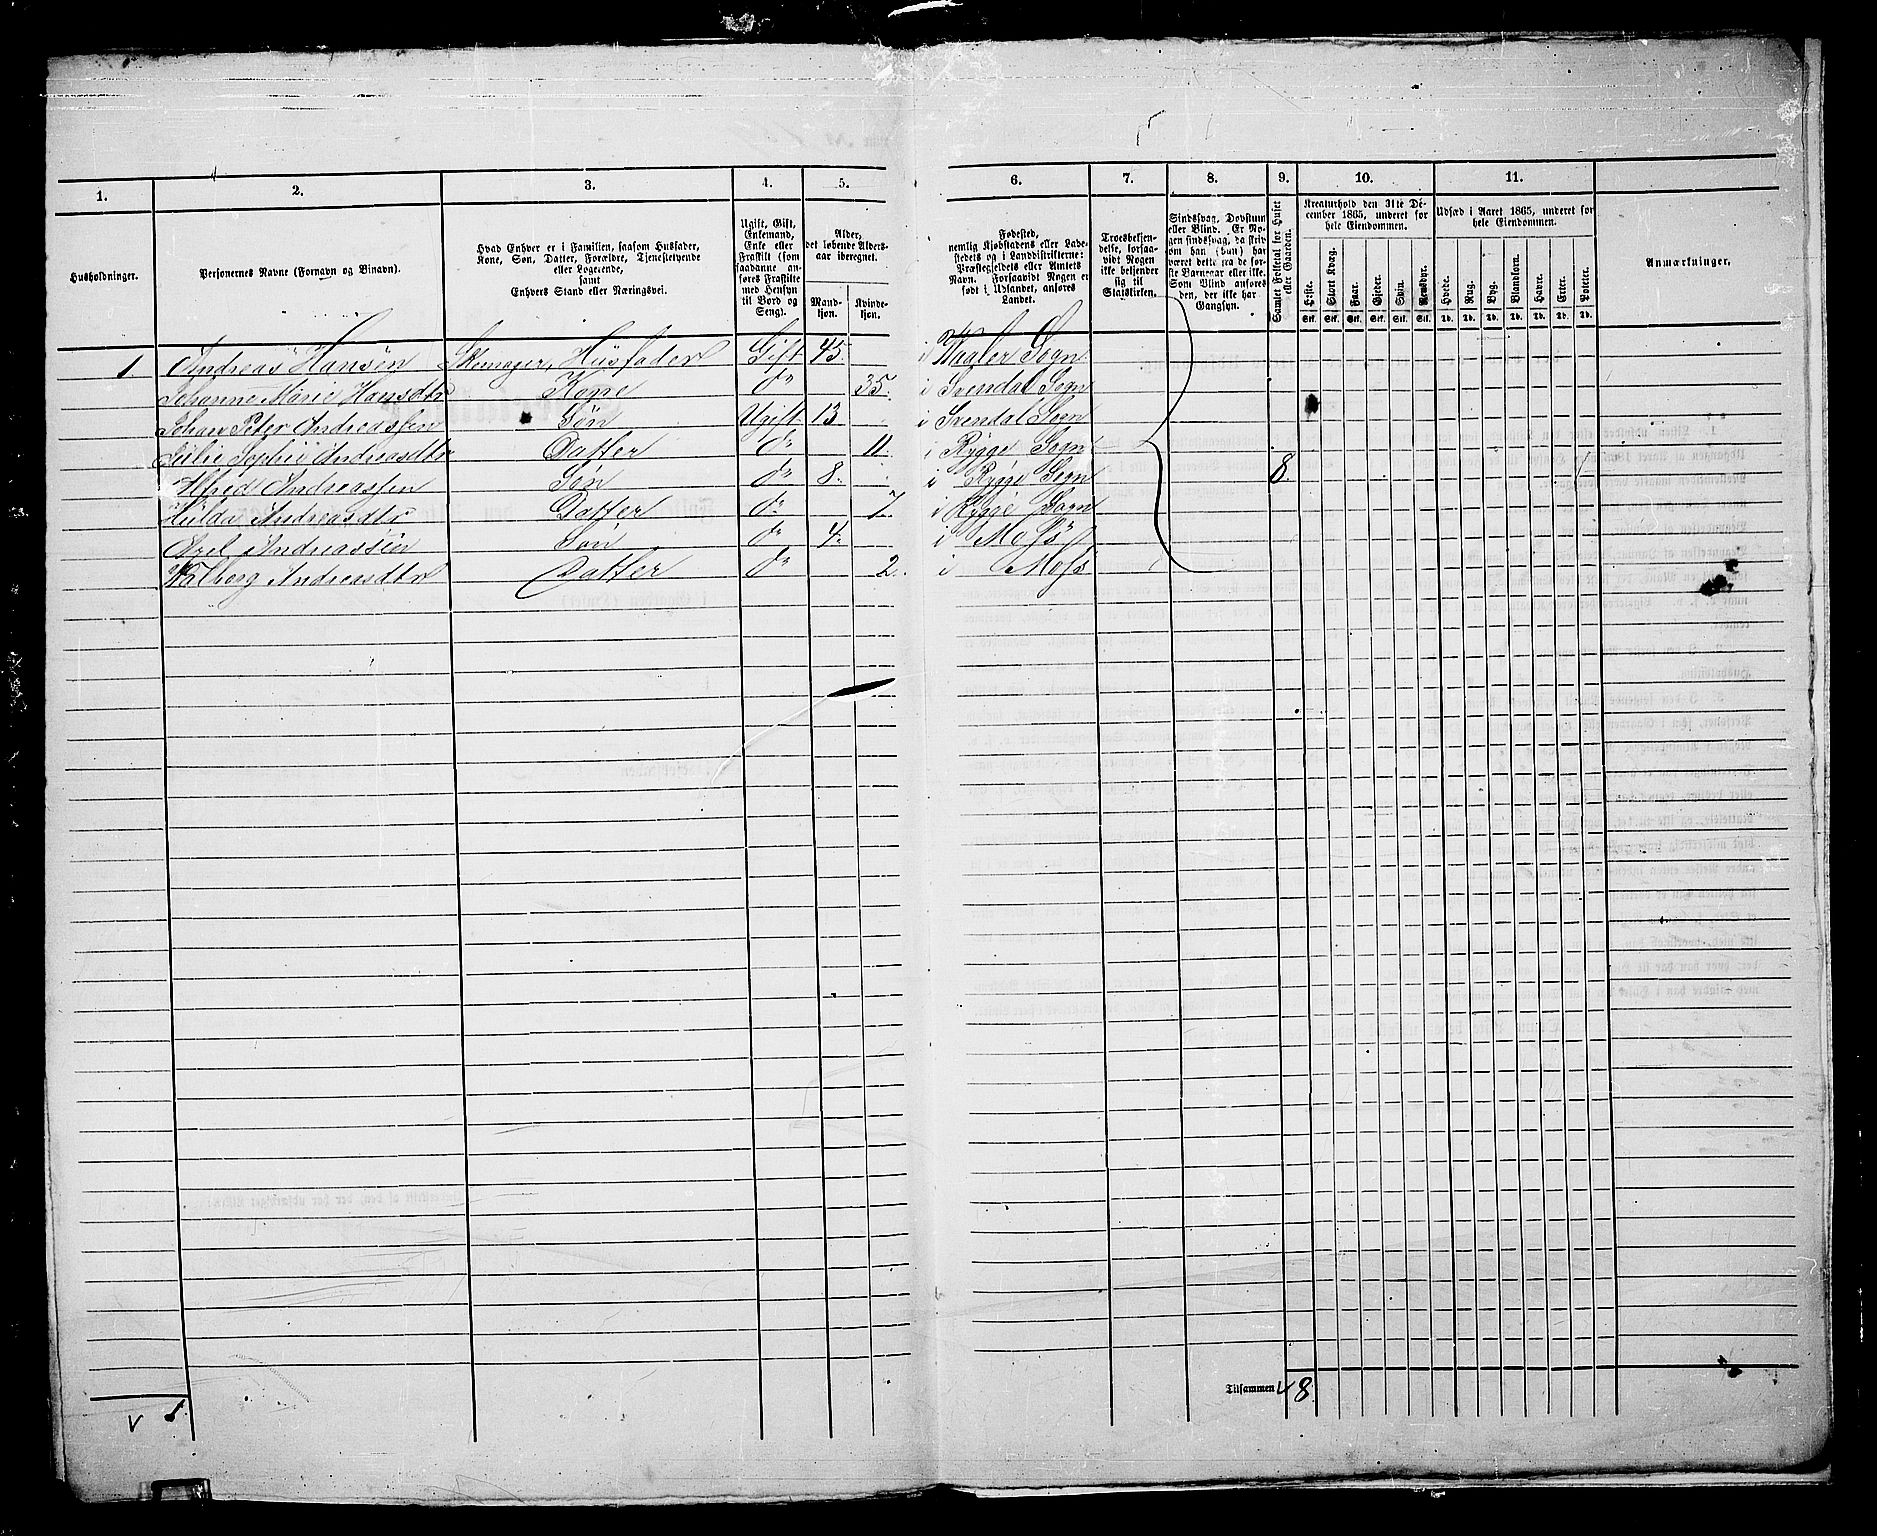 1. 2. 3. 4. 5. 6. 7. 8. 9. 10. 11.
Husholdninger.
Personernes Navne (Fornavn og Binavn).
Hvad Enhver er i Familien, saasom Husfader,
Kone, Søn, Datter, Forældre, Tjenestetyende
eller Logerende,
samt
Enhvers Stand eller Næringsvei.
Ugift, Gift,
Enkemand,
Enke eller
Fraskilt (som
saadanne an-
føres Fraskilte
med Hensyn
til Bord og
Seng).
Alder,
det løbende Alders-
aar iberegnet.
Mand-
kjøn.
Kvinde-
kjøn.
Fødested,
nemlig Kjøbstadens eller Lade-
stedets og i Landdistrikterne:
Præstegjeldets eller Amtets
Navn. Forsaavidt Nogen er
født i Udlandet, anføres
Landet.
Troesbekjen-
delse, forsaa-
vidt Nogen
ikke bekjender
sig til
Statskirken.
Sindssvag, Døvstum
eller Blind. Er No-
gen sindssvag, da skriv
om han (hun) har
været dette fra de før-
ste Barneaar eller ikke.
Som Blind anføres
den, der ikke har
Gangsyn.
Samlet Folketal for Huset
eller Gaarden.
Kreaturhold den 31te De-
cember 1865, underet for
hele Eiendommen.
Heste. Stort Kvæg. Faar. Gjeder. Svin. Rensdyr.
Stk. Stk. Stk. Stk. Stk. Stk.
Udsæd i Aaret 1865, underet for
hele Eiendommen.
Hvede. Rug. Byg. Blandkorn. Havre. Erter. Poteter.
Td. Td. Td. Td. Td. Td. Td.
Anmærkninger.
1. Andreas Hansen Skomager, Husfader Gift 45. i Waaler Sogn
Johanne Marie Hansdtr Kone do 35. i Svendal Sogn
Johan Peter Andreassen Søn Ugift 13 i Svendal Sogn
Julie Sophie Andreasdtr Datter do 11. i Rygge Sogn
Alfred Andreassen Søn do 8. i Rygge Sogn 8.
Hilda Andreasdtr Datter do 7. i Rygge Sogn
Axel Andreassen Søn do 4. i Moss
Walborg Andreasdtr Datter do 2. i Moss
Tilsammen 8.
1